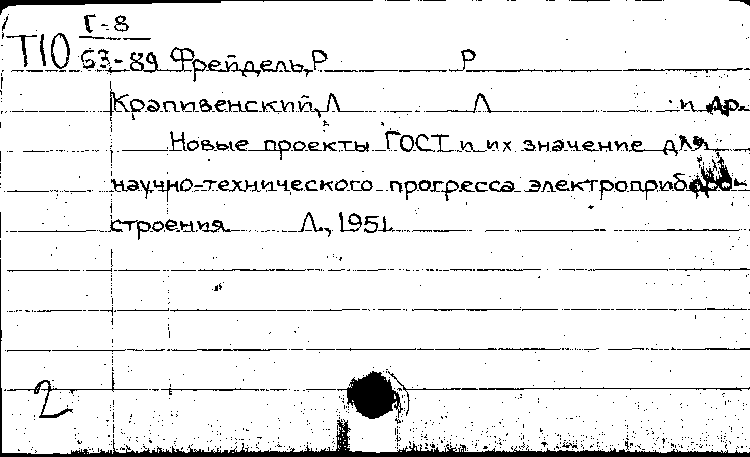 Г-8
Т10 63-89 Фрейдель, Р Р
Крапивенский, Л Л и др.
Новые проекты ГОСТ и их значение для
научно-технического прогресса электроприборо-
строения Л., 1951.
2